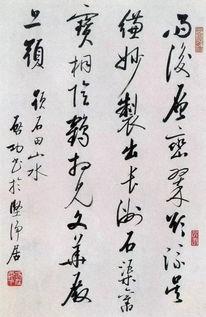 雨後層巒翠欲流吳
妙製出長洲石渠舊
寶桐陰鶴相見文華殿
上頭 題石田山水
啟功書於堅淨居